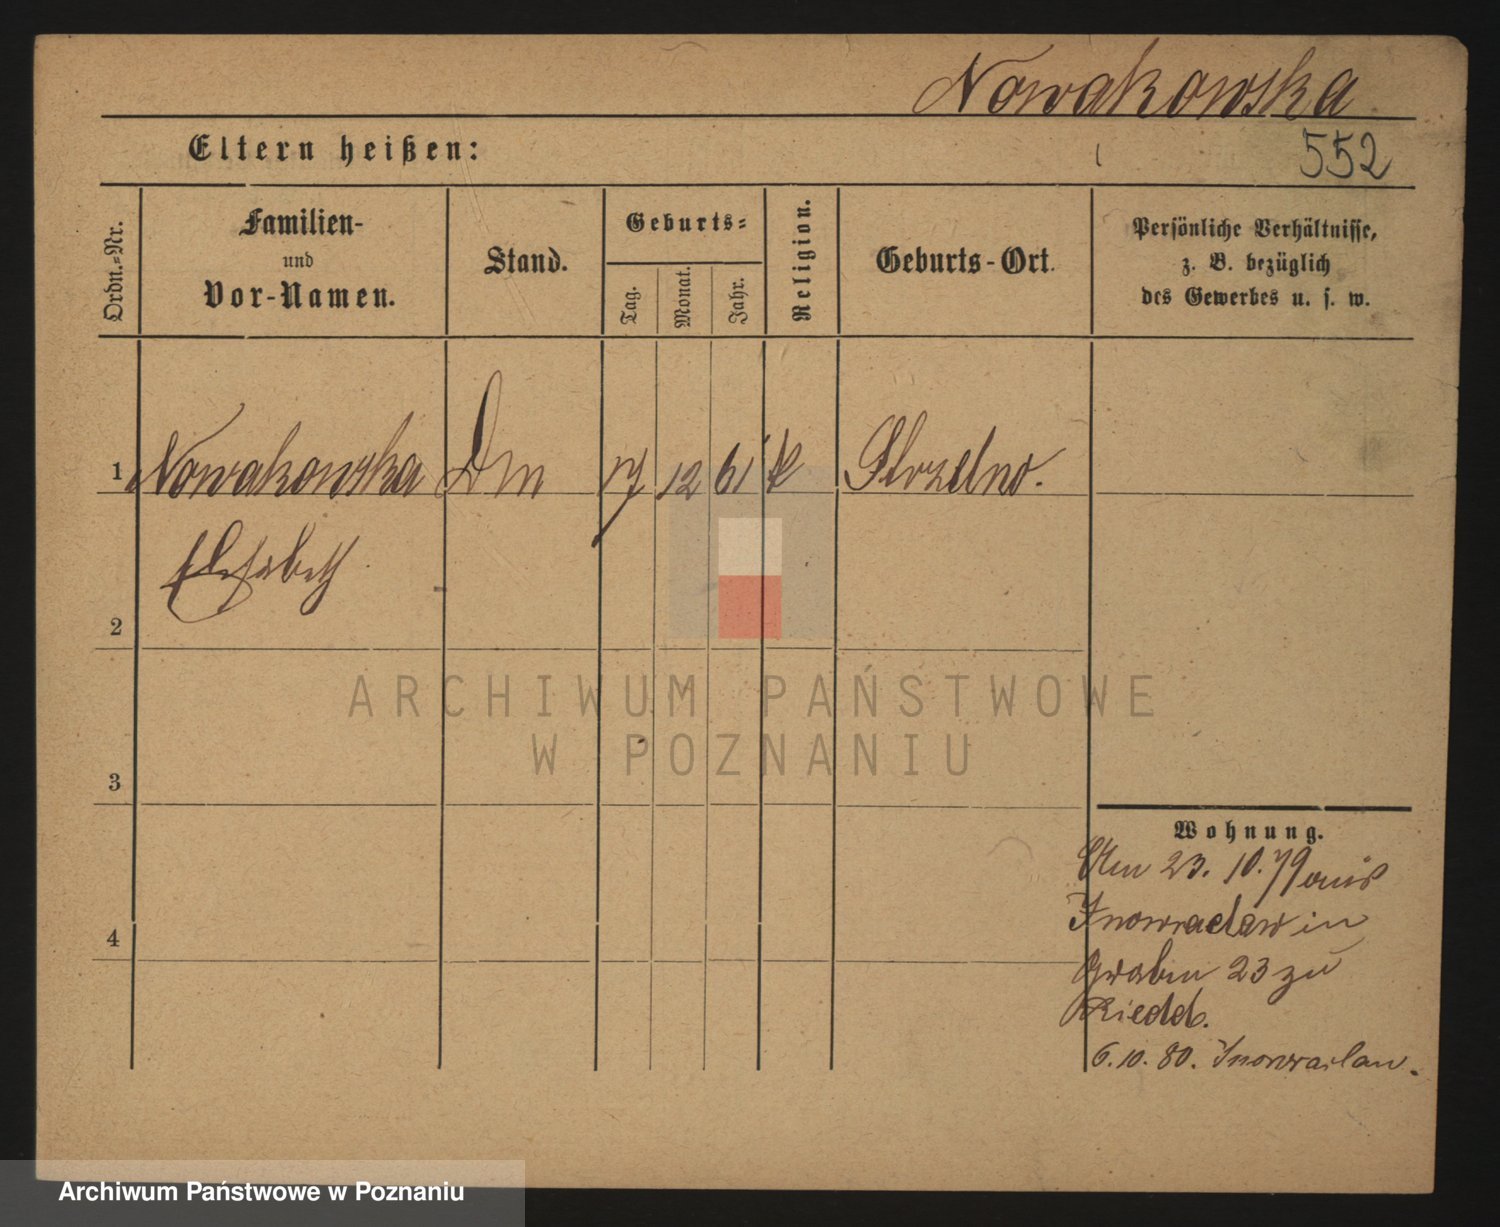 Nowakowska
Eltern heißen:
552
Ordn.-Nr.
Familien-
und
Vor-Namen.
Stand.
Geburts-
Tag.
Monat.
Jahr.
Religion.
Geburts-Ort.
Persönliche Verhältnisse,
z. B. bezüglich
des Gewerbes u. s. w.
1 Nowakowska Dm 17 12 61 k Strzelno.
Elisabeth
2
ARCHIWUM PAŃSTWOWE
W POZNANIU
3
Wohnung.
Am 23. 10. 79 aus
Inowraclaw in
4
Graben 23 zu
6. 10. 80. Inowraclaw.
Archiwum Państwowe w Poznaniu